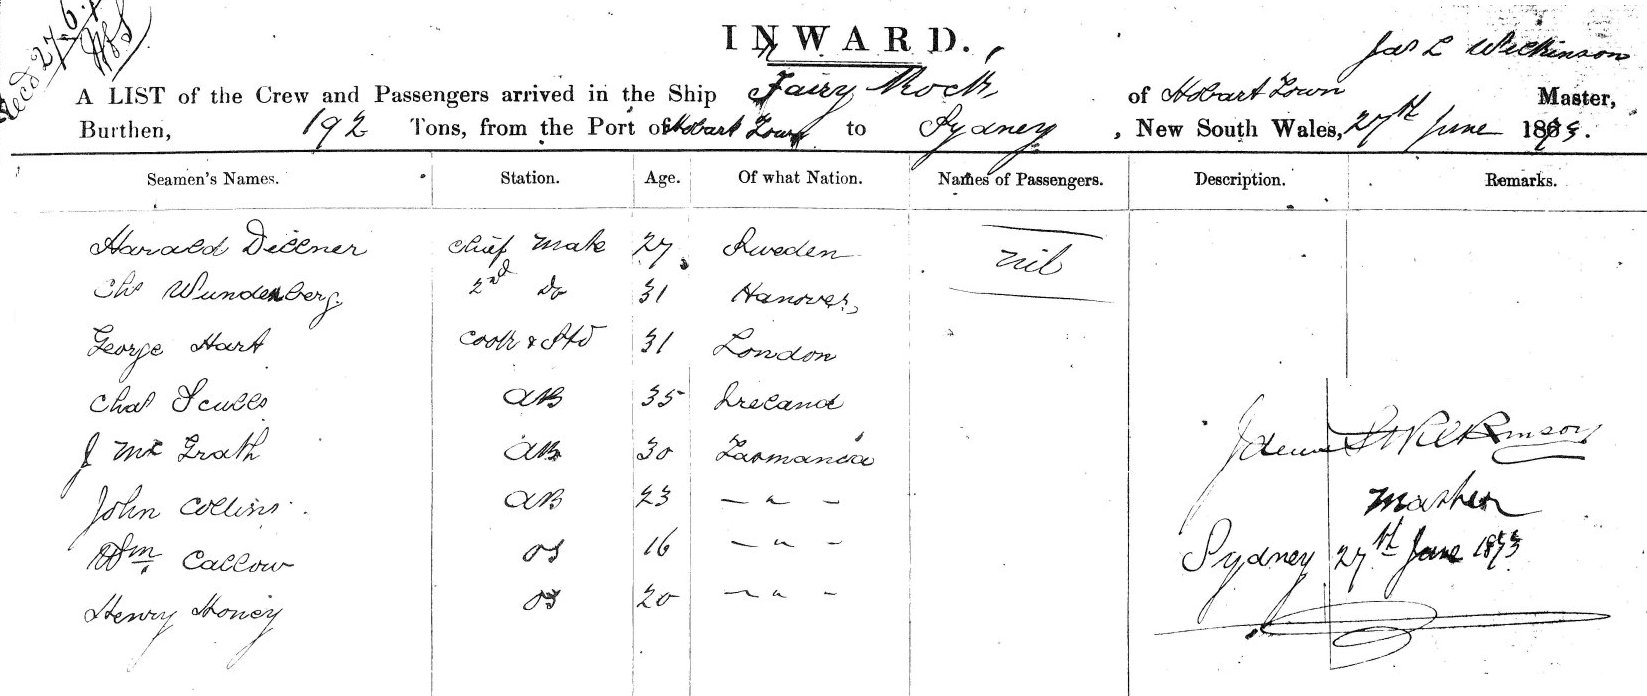 Recd 27.6.
INWARD.
Jas L Wilkinson
A LIST of the Crew and Passengers arrived in the Ship Fairy Rock, of Hobart Town Master,
Burthen, 192 Tons, from the Port of Hobart Town to Sydney, New South Wales, 27th June 1873.
Seamen's Names. Station. Age. Of what Nation. Names of Passengers. Description. Remarks.
Harald Dillner chief Mate 27 Sweden nil
Chs Wundenberg 2nd Do 31 Hanover,
George Hart Cook & Std 31 London
Chas Sculls AB 35 Ireland
J Mc Grath AB 30 Tasmania
John Collins AB 23 – " –
Wm Callow OS 16 – " –
Henry Honey OS 20 – " –
Wilkinson
Master
Sydney 27th June 1873